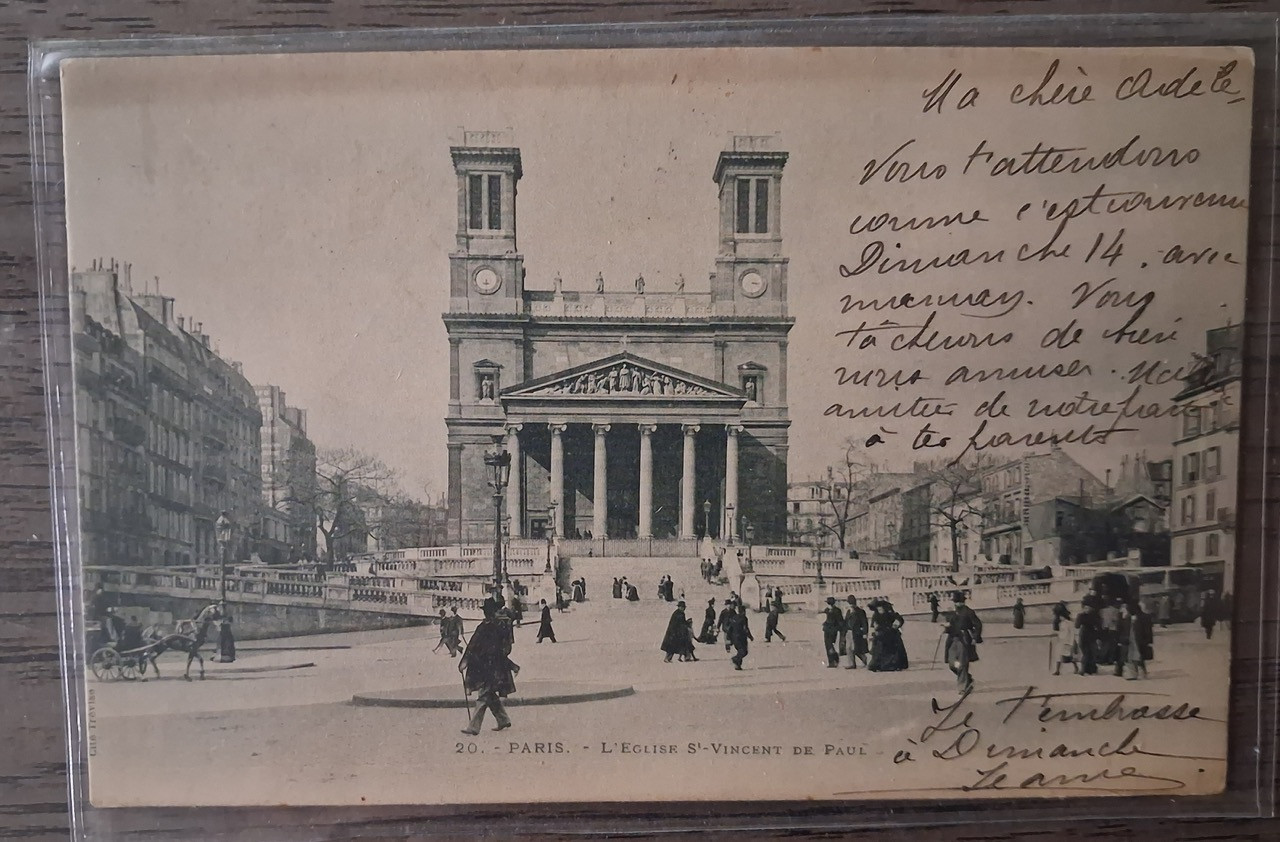 Ma chère Adèle,
Nous t'attendons
comme c'est convenu
Dimanche 14, avec
maman. Nous
tâcherons de bien
nous amuser.
amitiés de notre part
à tes parents
Je t'embrasse
à Dimanche
Jeanne
20. - PARIS. - L'EGLISE St-VINCENT DE PAUL
Cité Trévise